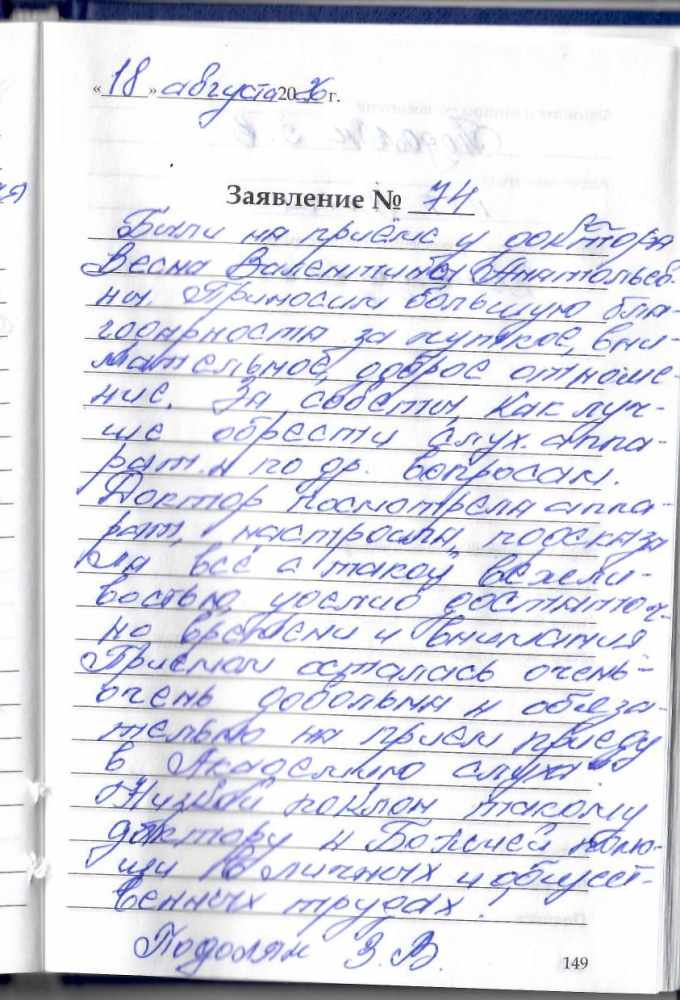 «18» августа 20 г.
Заявление № 74
Были на приёме у доктора
Весна Валентины Анатольев-
ны. Приносим большую бла-
годарность за чуткое, вни-
мательное, доброе отноше-
ние. За советы, как луч-
ше обрести слух. аппа-
рат. и по др. вопросам.
Доктор посмотрела аппа-
рат, настроила, подсказа
ла всё с такой вежли-
востью, уделив достаточ-
но времени и внимания
Приёмом осталась очень-
очень довольна и обяза-
тельно на приём приеду
в Академию слуха.
Низкий поклон такому
доктору и Божией помо-
щи в личных и общест-
венных трудах.
Подолян З.В.
149